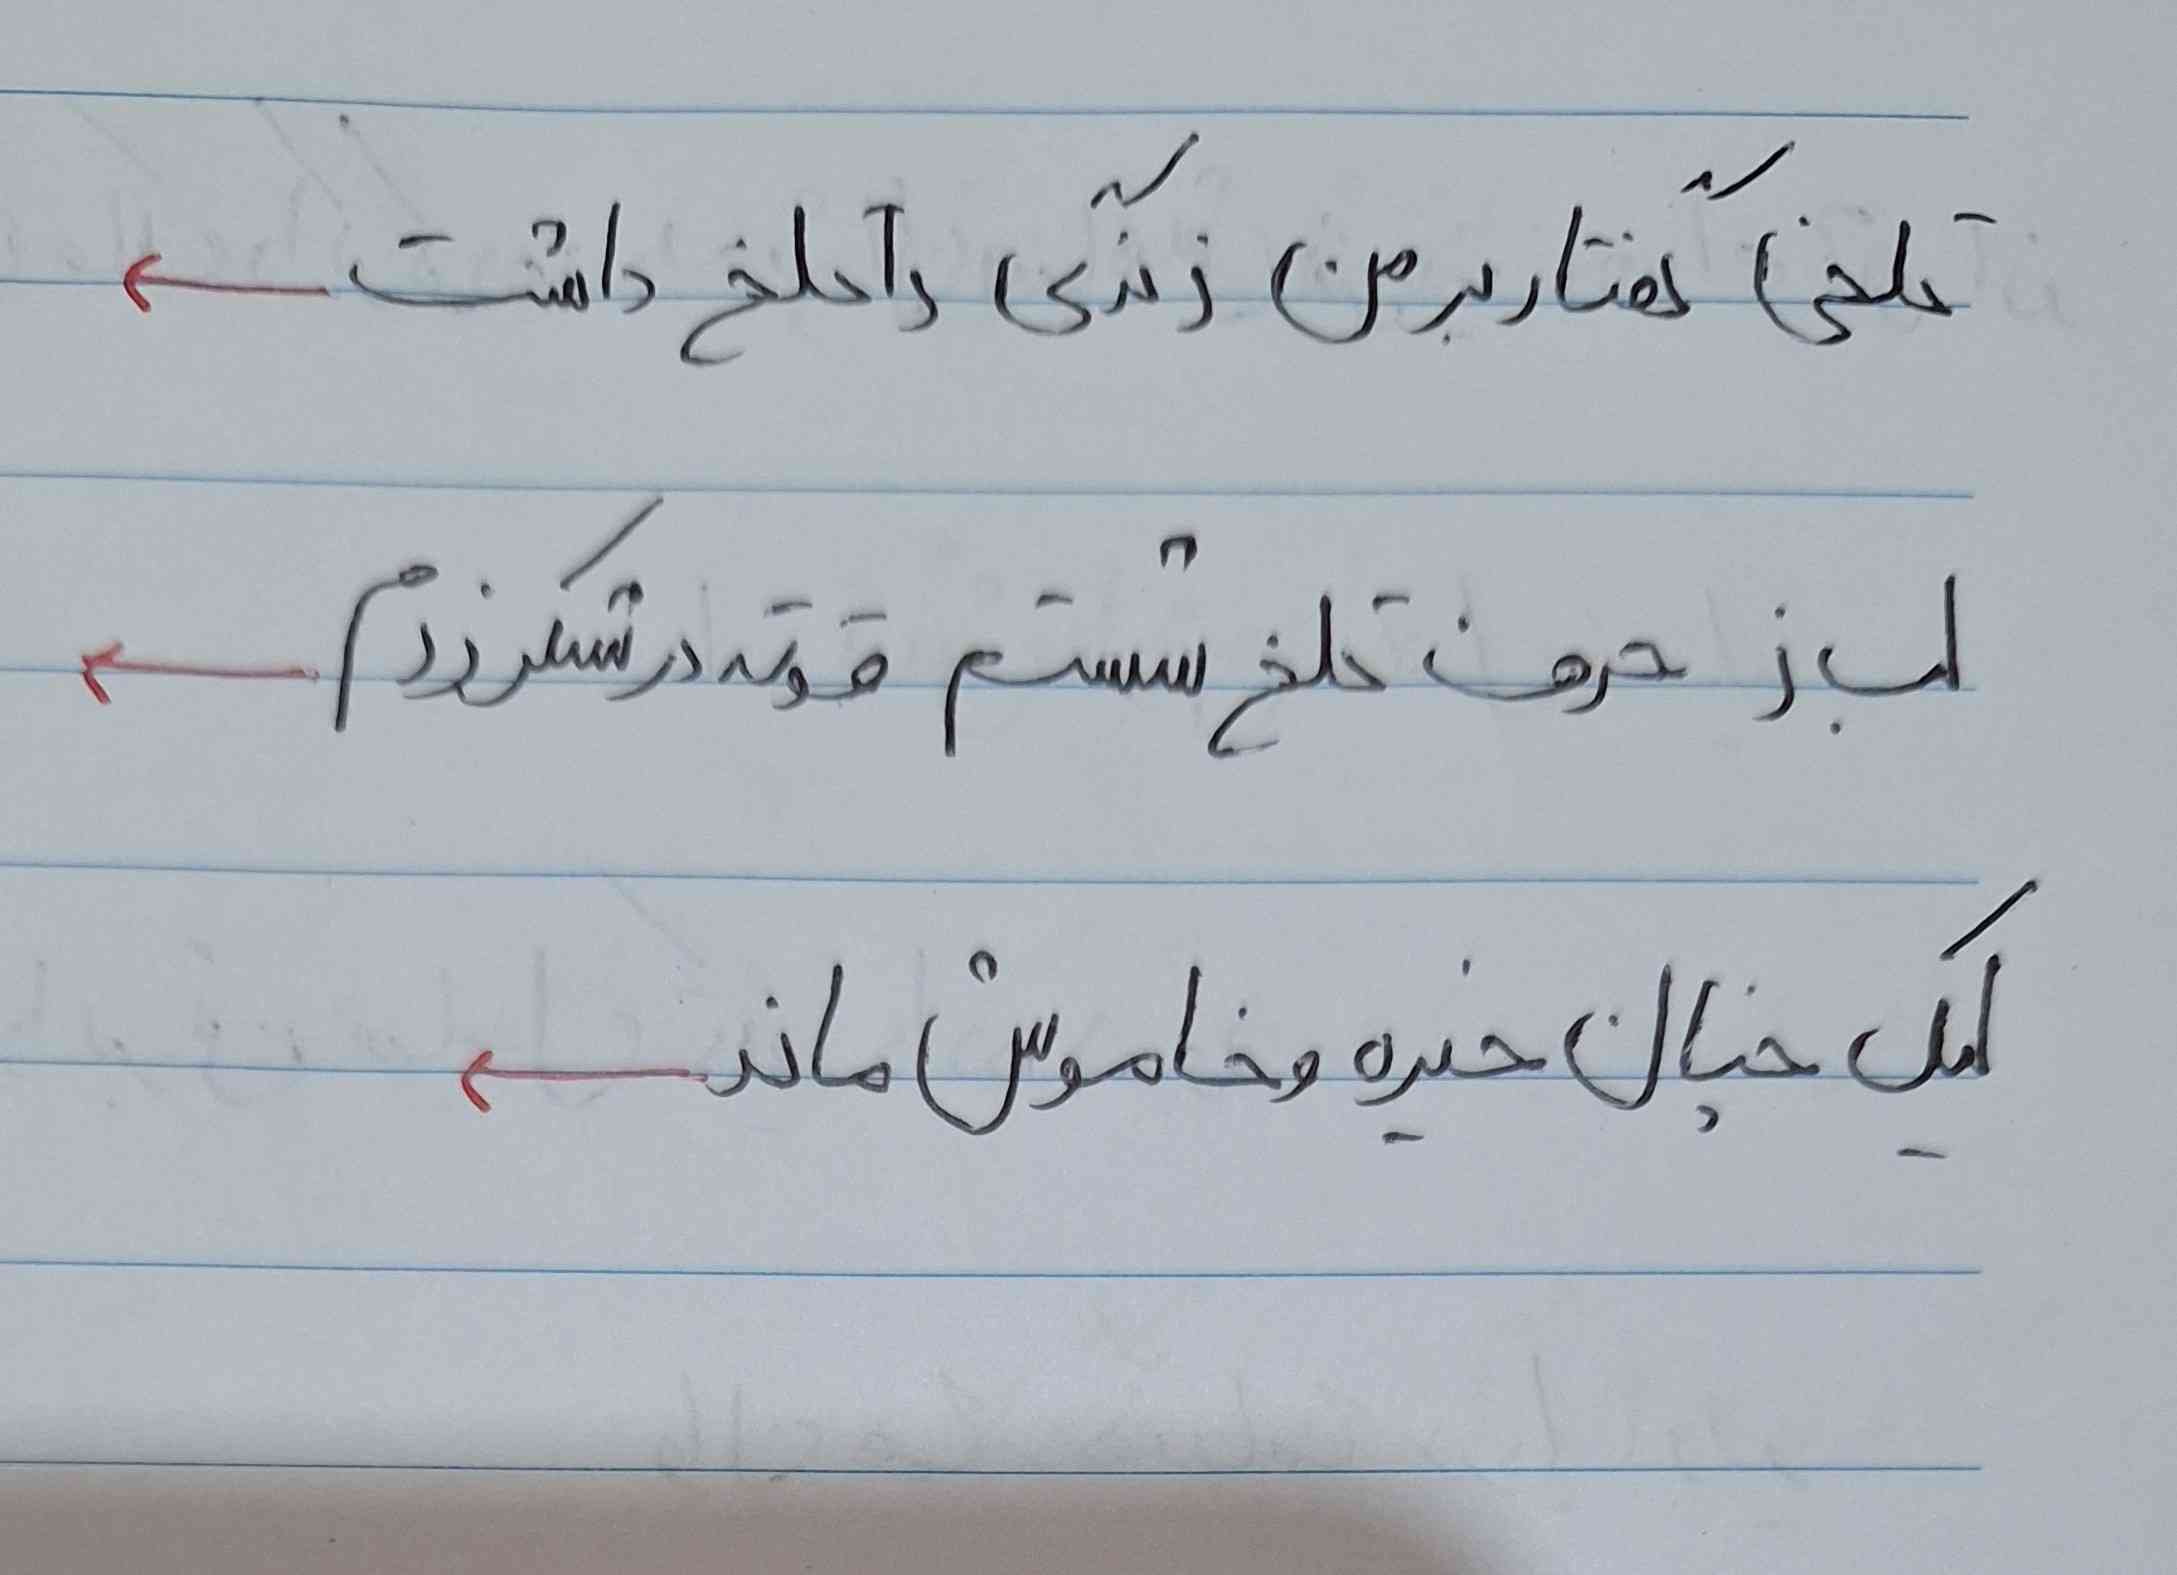 تلخی گفتار بر من زندگی را تلخ داشت ←
لب ز حرف تلخ شستم غوته در شکر زدم ←
لیک خیال خیره و خاموش ماند ←